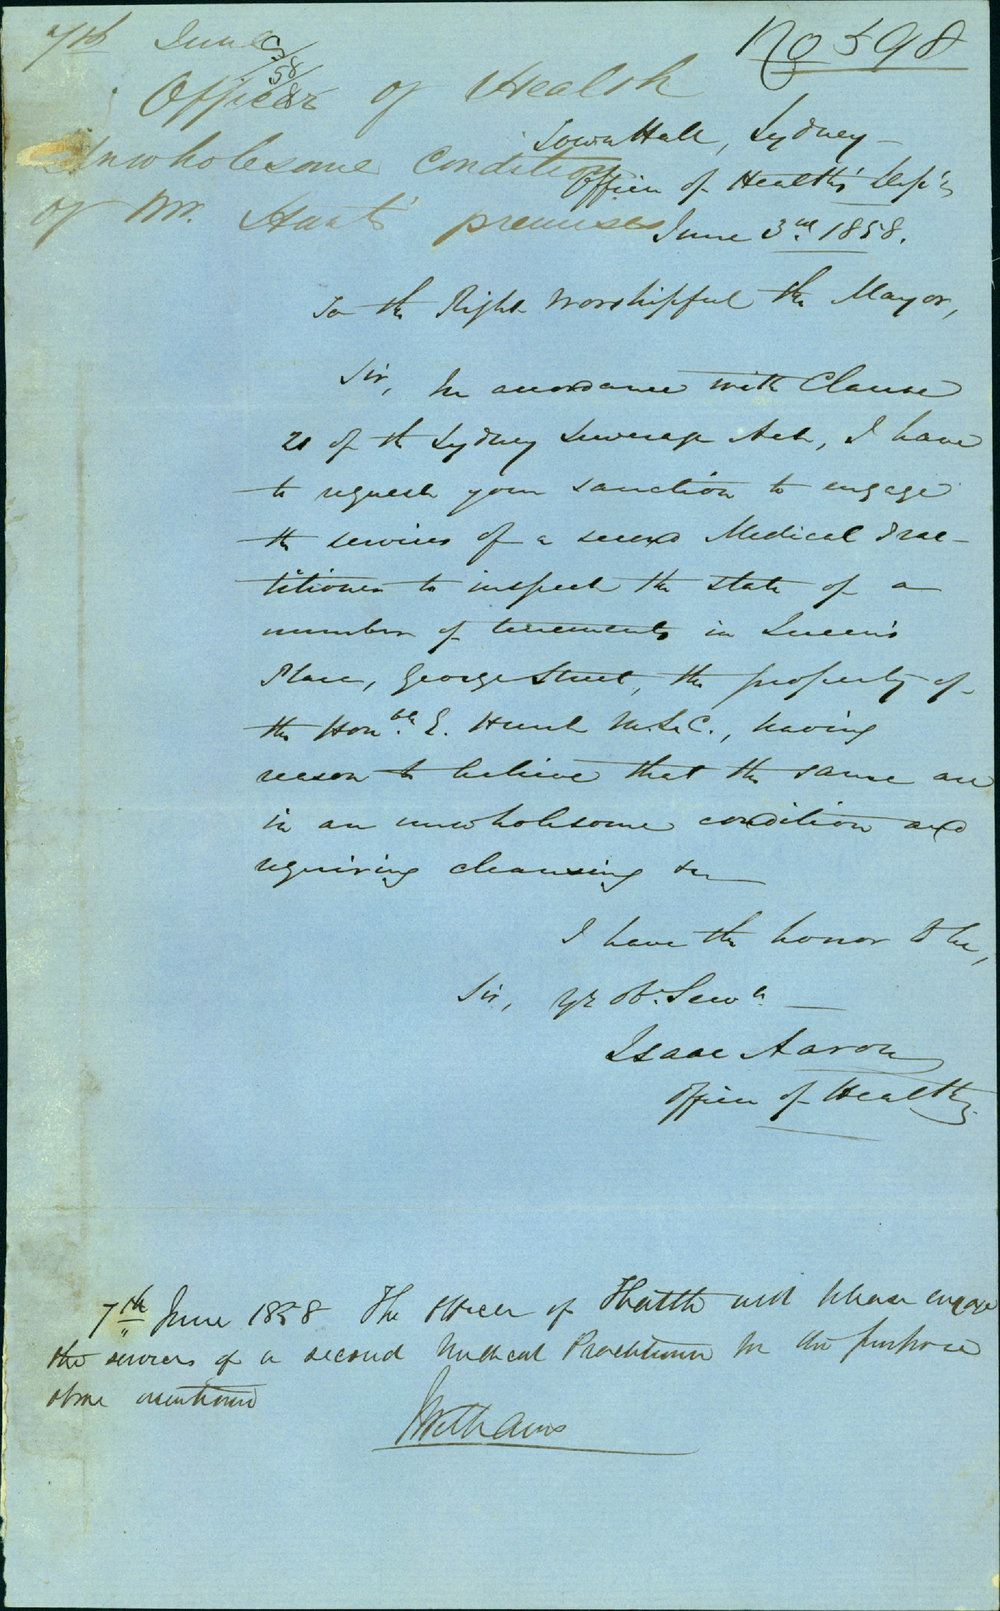 7th June
58
No 598
Officer of Health
Unwholesome Condition
of Mr. Hunt's premises
Town Hall, Sydney
Officer of Health's Dep't
June 3rd 1858.
To the Right Worshipful the Mayor,
Sir, In accordance with Clause
21 of the Sydney Sewerage Act, I have
to request your sanction to engage
the services of a second Medical Prac-
titioner to inspect the state of a
number of tenements in Queen's
Place, George Street, the property of
the Honble. E. Hunt M.L.C., having
reason to believe that the same are
in an unwholesome condition and
requiring cleansing &c
I have the honor to be,
Sir, Yr Ob. Servt.
Isaac Aaron
Officer of Health
7th June 1858 The Officer of Health will please engage
the services of a second Medical Practitioner for the purpose
above mentioned